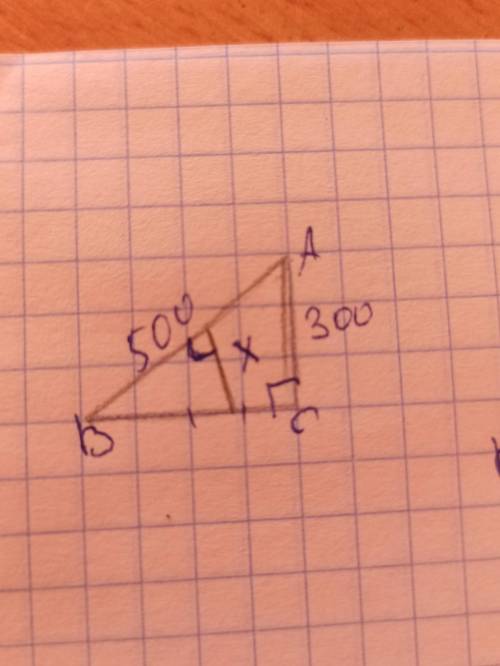 A
500
300
X
B
C